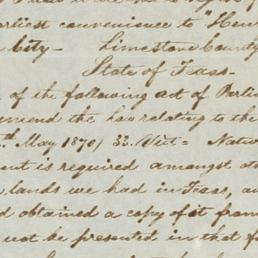 earliest convenience to "Hen
City - Limestone County
State of Texas -
of the following act of Parli
amend the law relating to the
th May 1870) 33. Vict = Natu
ent is required amongst oth
lands we had in Texas, an
d obtained a copy of it from
not be presented in that f